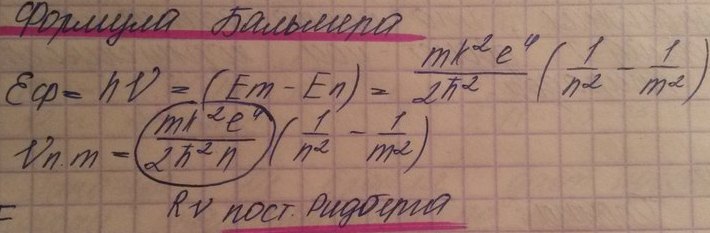 Формула Бальмера
Eф = hν = (Em - En) = mk²e⁴/2ħ² (1/n² - 1/m²)
νn.m = mk²e⁴/2ħ²h (1/n² - 1/m²)
= Rν пост. Ридберга